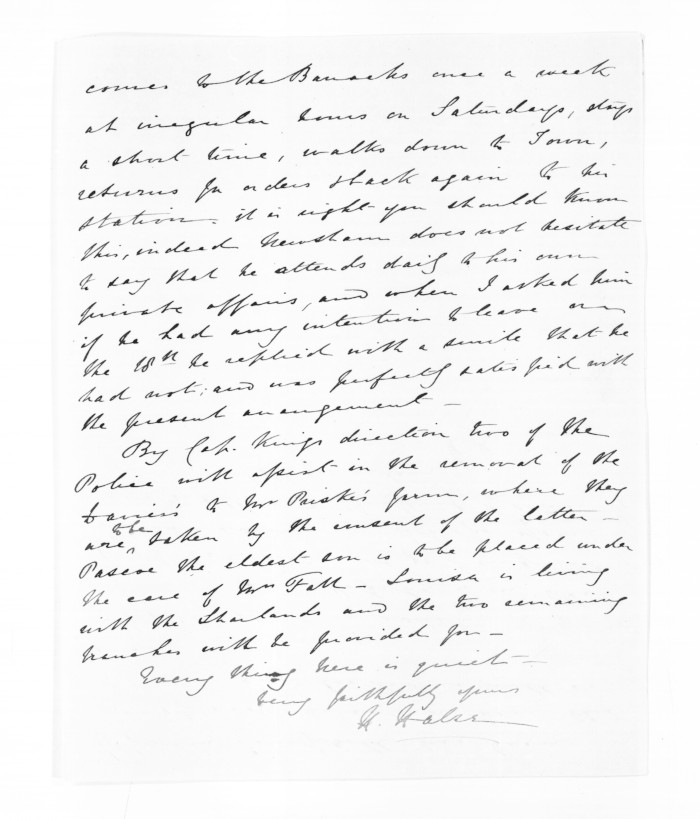 comes to the Barracks once a week
at irregular hours on Saturdays, stays
a short time, walks down to Town,
returns for orders & back again to his
station. it is right you should know
this, indeed Newsham does not hesitate
to say that he attends daily to his own
private affairs, and when I asked him
if he had any intention to leave on
the 18th he replied with a smile that he
had not; and was perfectly satisfied with
the present arrangement –
By Cap. Kings direction two of the
Police will assist in the removal of the
to Mr Priske's farm, where they
are to be taken by the consent of the latter –
Pascoe the eldest son is to be placed under
the care of Mrs Fall – Louisa is living
with the Sharlands and the two remaining
branches will be provided for –
Every thing here is quiet –
very faithfully yours
H. Halse